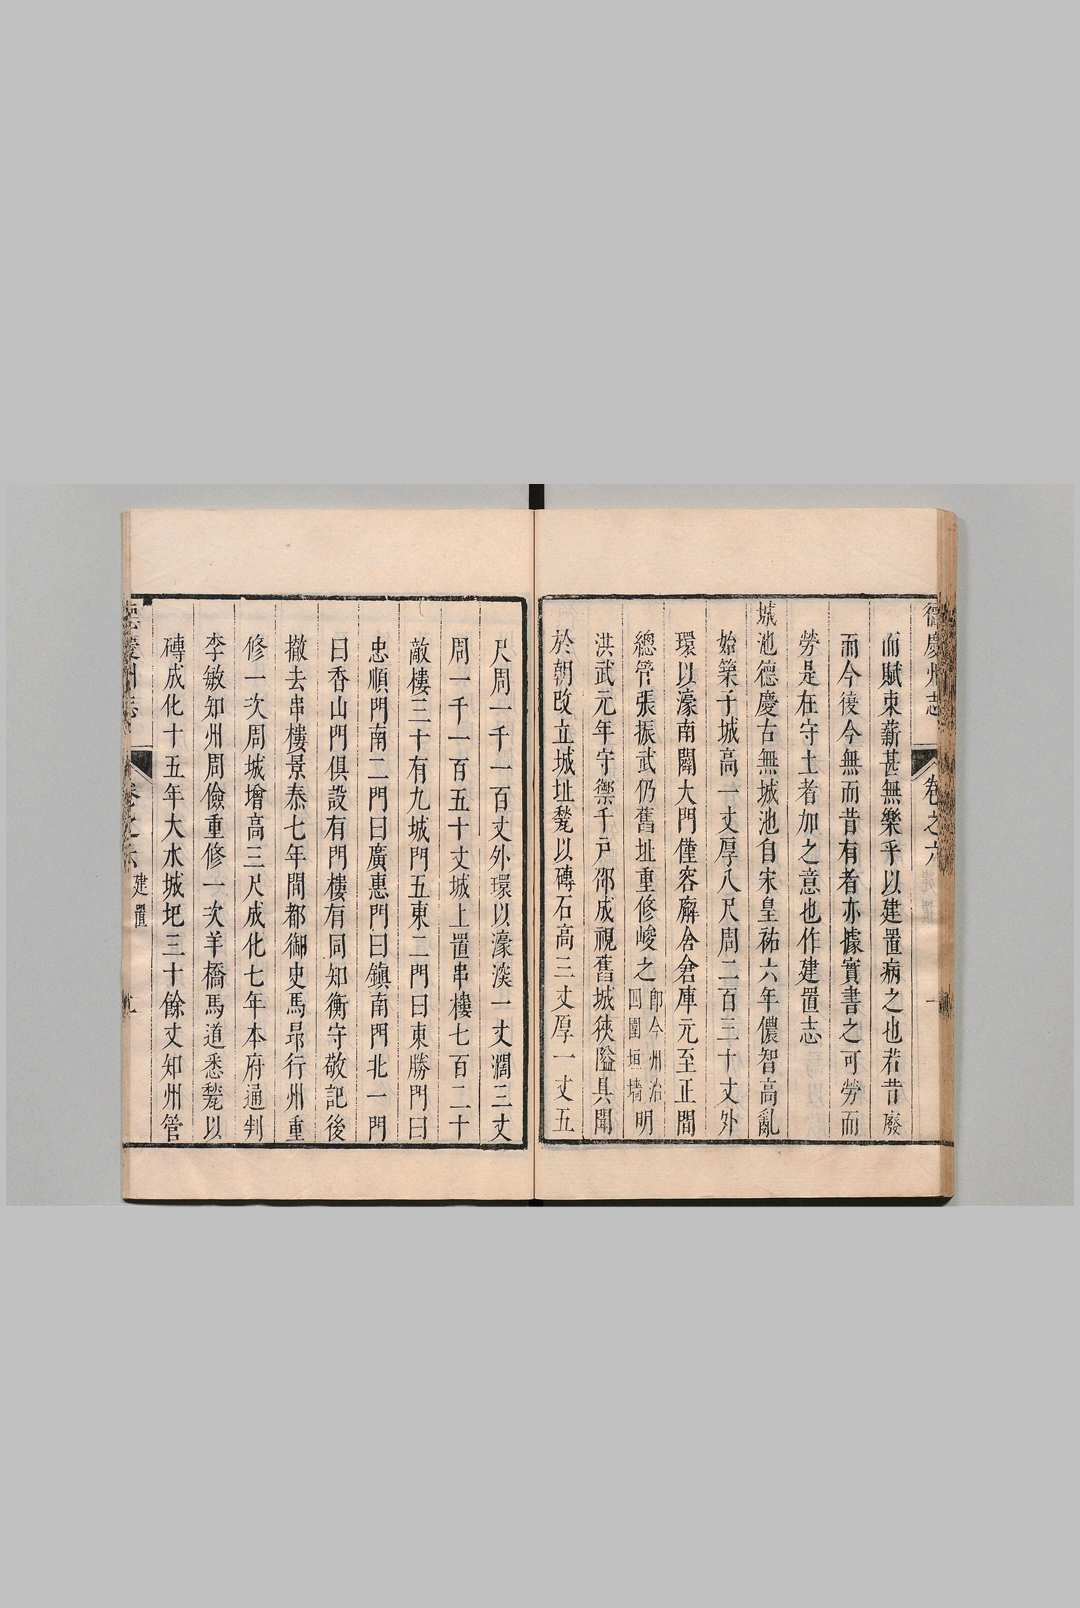 德慶州志
卷之六
一
而賦束薪甚無樂乎以建置病之也若昔廢
而今復今無而昔有者亦據實書之可勞而
勞是在守土者加之意也作建置志
城池德慶古無城池自宋皇祐六年儂智高亂
始築子城高一丈厚八尺周二百三十丈外
環以濠南闢大門僅容廨舍倉庫元至正間
總管張振武仍舊址重修峻之
卽今州治
四圍垣墻
明
洪武元年守禦千戶邵成視舊城狹隘具聞
於朝改立城址甃以磚石高三丈厚一丈五
尺周一千一百丈外環以濠深一丈濶三丈
周一千一百五十丈城上置串樓七百二十
敵樓三十有九城門五東二門曰東勝門曰
忠順門南二門曰廣惠門曰鎮南門北一門
曰香山門俱設有門樓有同知衡守敬記後
撤去串樓景泰七年間都御史馬昻行州重
修一次周城增高三尺成化七年本府通判
李敏知州周儉重修一次羊橋馬道悉甃以
磚成化十五年大水城圯三十餘丈知州管
德慶州志
卷之六
建置